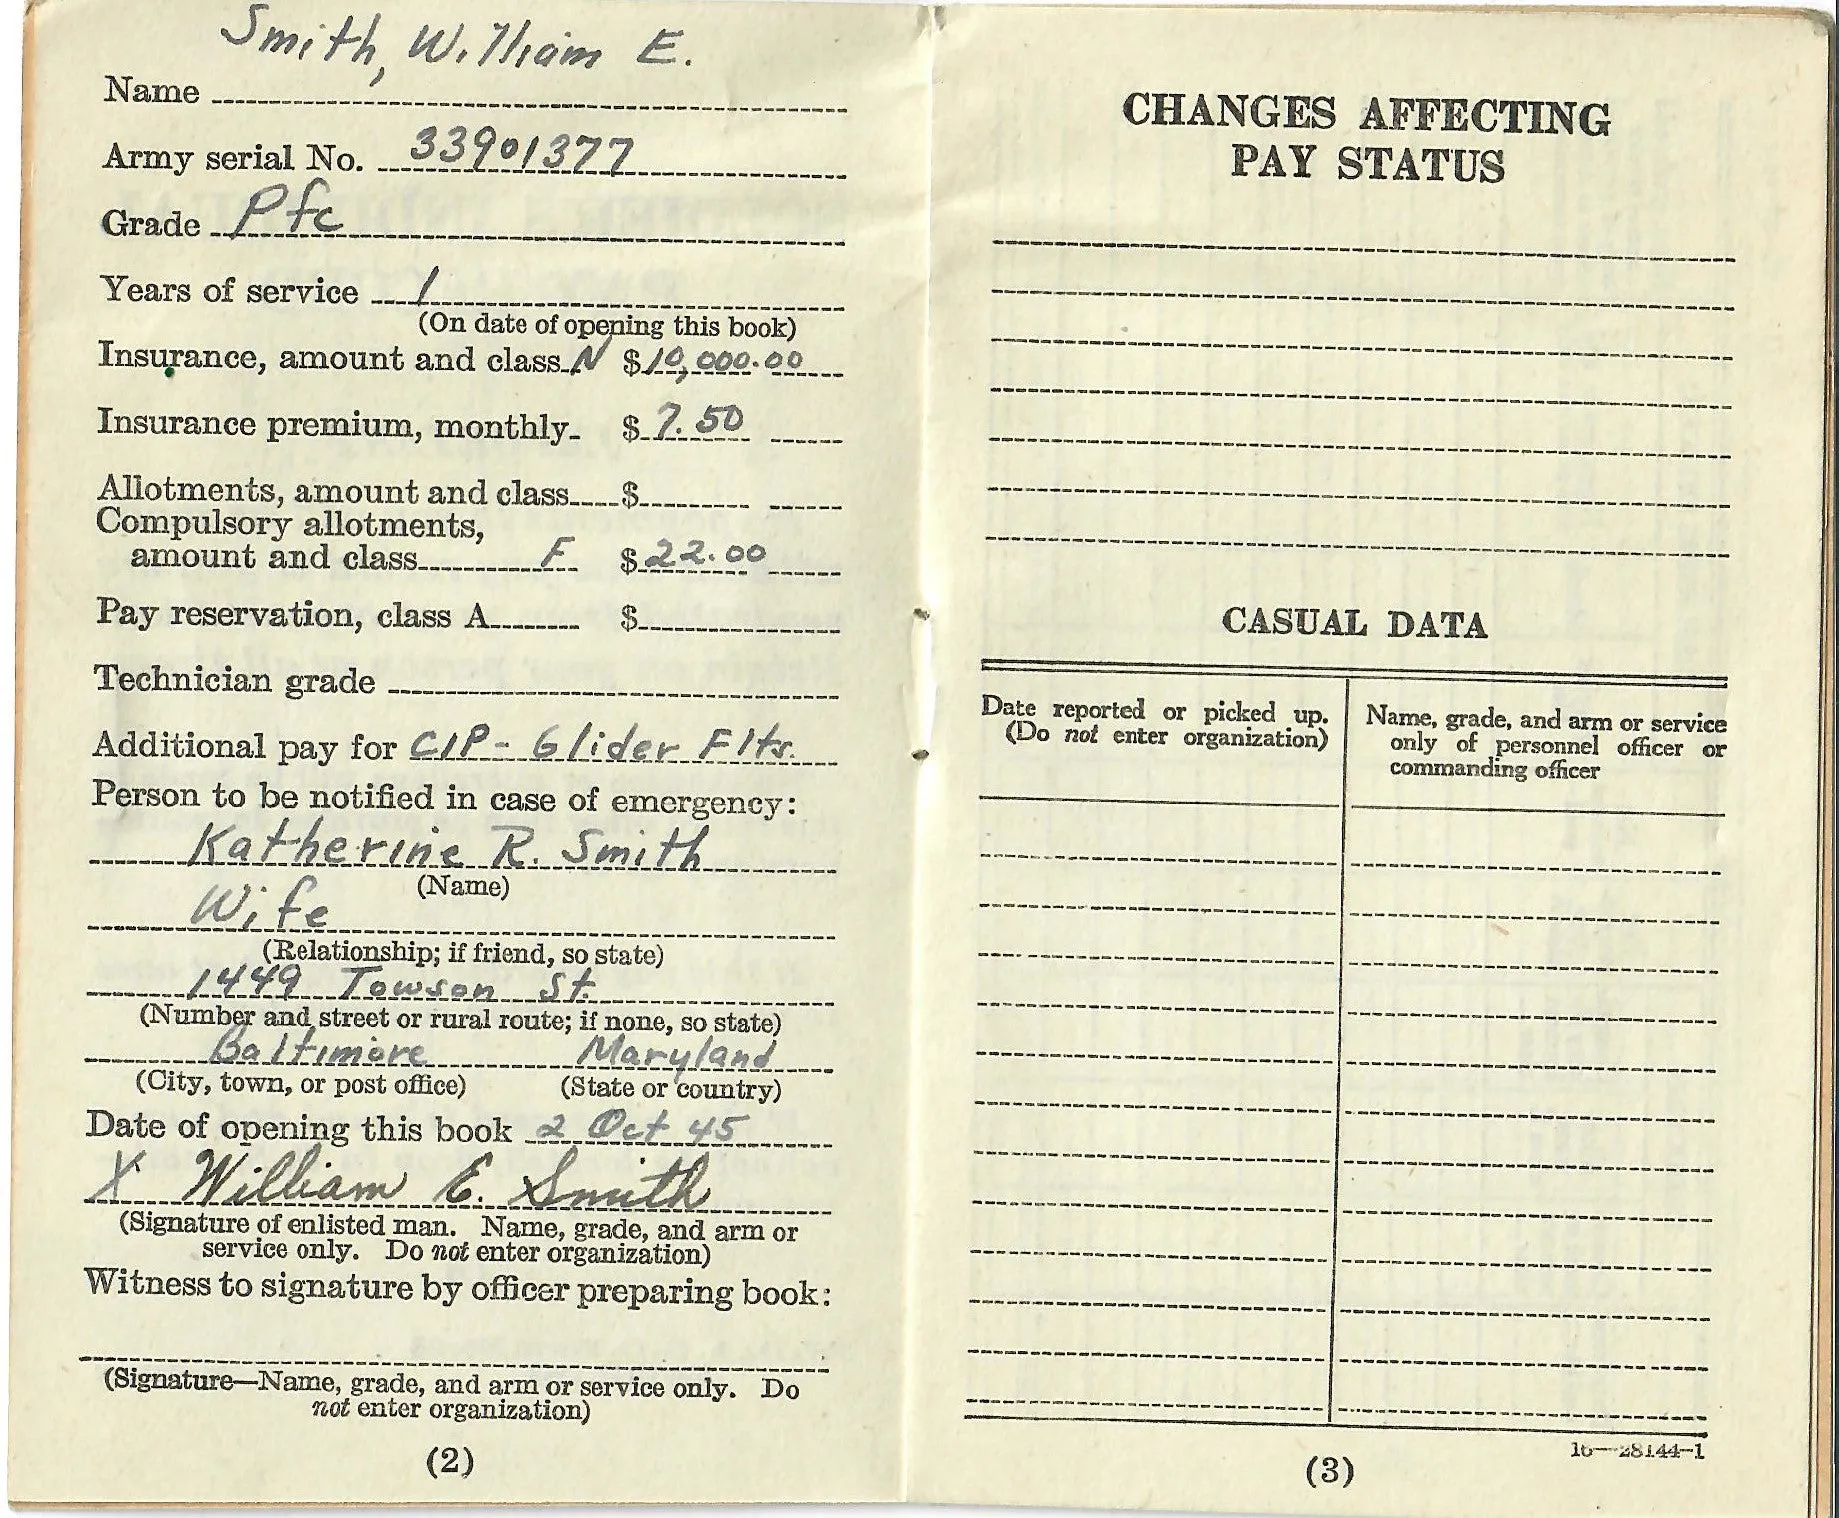 Smith, William E.
Name
Army serial No. 33901377
Grade Pfc
Years of service 1
(On date of opening this book)
Insurance, amount and class N $10,000.00
Insurance premium, monthly $ 7.50
Allotments, amount and class $
Compulsory allotments,
amount and class F $22.00
Pay reservation, class A $
Technician grade
Additional pay for CIP - Glider Flts.
Person to be notified in case of emergency:
Katherine R. Smith
(Name)
Wife
(Relationship; if friend, so state)
1449 Towson St.
(Number and street or rural route; if none, so state)
Baltimore Maryland
(City, town, or post office) (State or country)
Date of opening this book 2 Oct 45
X William E. Smith
(Signature of enlisted man. Name, grade, and arm or
service only. Do not enter organization)
Witness to signature by officer preparing book:
(Signature—Name, grade, and arm or service only. Do
not enter organization)
(2)
CHANGES AFFECTING
PAY STATUS
CASUAL DATA
Date reported or picked up.
(Do not enter organization)
Name, grade, and arm or service
only of personnel officer or
commanding officer
16—28144-1
(3)